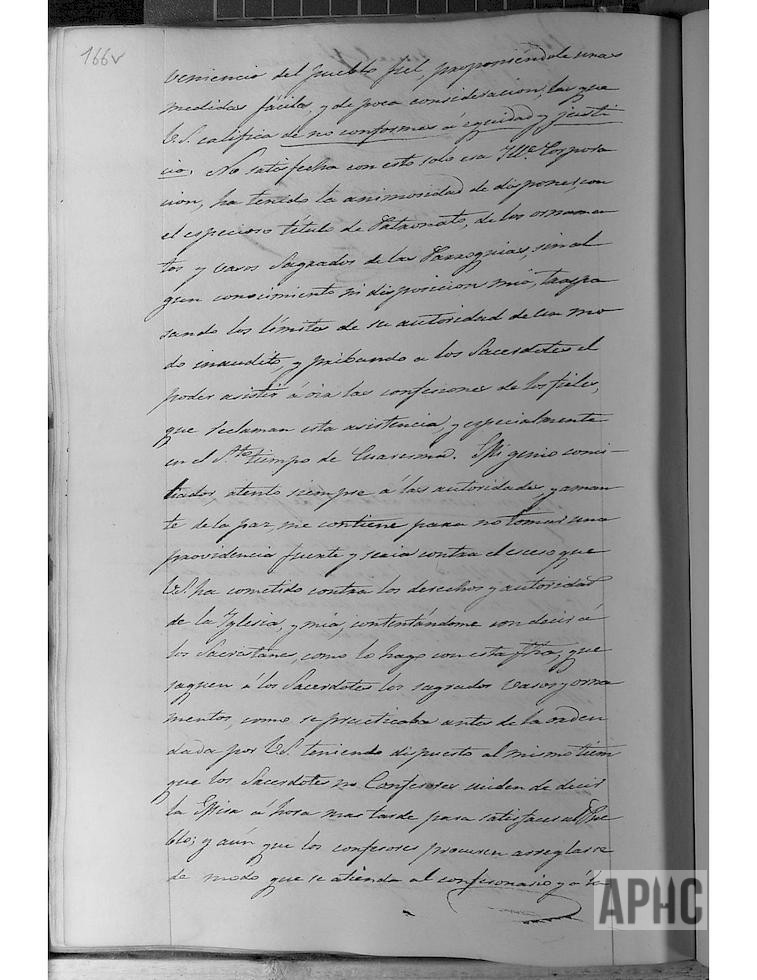 166v
veniencia del pueblo fiel, proponiéndole unas
medidas fáciles, y de poca consideracion, las que
V.S. califica de no conformes á equidad y justi
cia. No satisfecha con esto solo esa Ille. Corpora
cion, ha tenido la animosidad de disponer con
el especioso título de Patronato, de los ornamen
tos y vasos Sagrados de las Parroquias, sin al
gun conocimiento ni disposicion mia, traspa
sando los límites de su autoridad de un mo
do inaudito, y pribando a los Sacerdotes el
poder asistir á oir las confesiones de los fieles,
que reclaman esta asistencia, y especialmente
en el Sto. tiempo de Cuaresma. Mi genio conci-
liador, atento siempre á las autoridades, y aman
te de la paz, me contiene para no tomar una
providencia fuerte y seria contra el exceso que
V.S. ha cometido contra los derechos y autoridad
de la Yglesia, y mia, contentándome con decir á
los Sacristanes, como lo hago con esta fha, que
saquen á los Sacerdotes los sagrados vasos y orna
mentos, como se practicaba antes de la orden
dada por V.S. teniendo dispuesto al mismo tiem
que los Sacerdotes no Confesores cuiden de decir
la Misa á hora mas tarde para satisfacer al Pue
blo; y aún que los confesores procuren arreglarse
de modo que se atienda al confesonario y á la
APHC